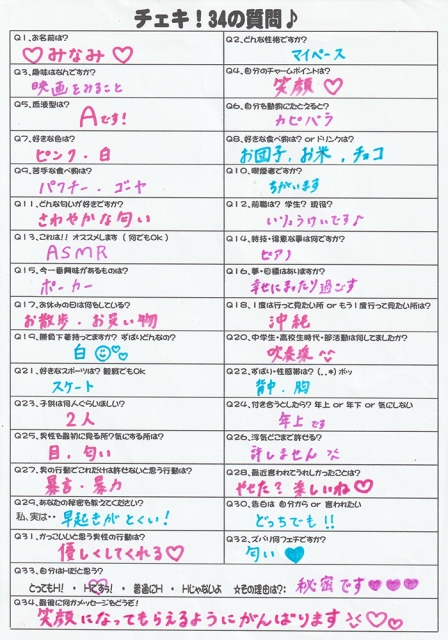 チェキ！34の質問♪
Q1、お名前は？
♡みなみ♡
Q2、どんな性格ですか？
マイペース
Q3、趣味はなんですか？
映画をみること
Q4、自分のチャームポイントは？
笑顔♡
Q5、血液型は？
Aです！
Q6、自分を動物にたとえると？
カピバラ
Q7、好きな色は？
ピンク・白
Q8、好きな食べ物は？ or ドリンクは？
お団子，お米，チョコ
Q9、苦手な食べ物は？
パクチー・ゴーヤ
Q10、喫煙者ですか？
ちがいます
Q11、どんな匂いが好きですか？
さわやかな匂い
Q12、前職は？ 学生？ 現役？
いりょうけいです♪
Q13、これは！！ オススメします（何でもOk）
ASMR
Q14、特技・得意な事は何ですか？
ピアノ
Q15、今一番興味があるものは？
ポーカー
Q16、夢・目標はありますか？
幸せにまったり過ごす
Q17、お休みの日は何をしている？
お散歩・お買い物
Q18、1度は行って見たい所 or もう1度行って見たい所は？
沖縄
Q19、勝負下着持ってますか？ ずばりどんなの？
白
Q20、中学生・高校生時代・部活動は何してましたか？
吹奏楽
Q21、好きなスポーツは？ 観戦でもOK
スケート
Q22、ずばり・性感帯は？（..*）ポッ
背中・胸
Q23、子供は何人ぐらいほしい？
2人
Q24、付き合うとしたら？ 年上 or 年下 or 気にしない
年上です
Q25、男性を最初に見る所？気にする所は？
目，匂い
Q26、浮気どこまで許せる？
許しません
Q27、男の行動でこれだけは許せないと思う行動は？
暴言・暴力
Q28、最近言われてうれしかったことは？
やせた？ 楽しいね♡
Q29、あなたの秘密を教えてください？
私、実は・・早起きがとくい！
Q30、告白は 自分から or 言われたい
どっちでも！！
Q31、かっこいいと思う男性の行動は？
優しくしてくれる♡
Q32、ズバリ何フェチですか？
匂い♥
Q33、自分はHだと思う？
とってもH！ ・ Hですぅ！ ・ 普通にH ・ Hじゃないよ ☆その理由は？：秘密です♥♥♥
Q34、最後に何かメッセージをどうぞ！
笑顔になってもらえるようにがんばります♡♡